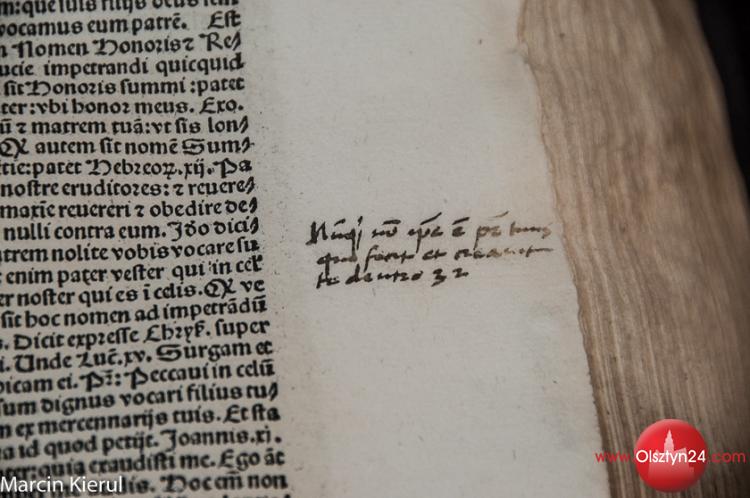 m: que suis filijs deus
vocamus eum patrē. Est
Nomen Honoris ⁊ Re⸗
ucie impetrandi quicquid
sit Honoris summi : patet
ter: vbi honor meus. Exo.
ū ⁊ matrem tuā: vt sis lon⸗
Ꝙ autem sit nomē Sum⸗
tie: patet Hebreoꝝ. xij. Pa
nostre eruditores: ⁊ reuere⸗
maxīe reuereri ⁊ obedire de⸗
nulli contra eum. Iđo dici⸗
trem nolite vobis vocare su
enim pater vester qui in cel
er noster qui es ī celis. Ꝙ ve
sit hoc nomen ad impetrādū
. Dicit expresse Chryſ. super
i. Unde Luc̄. xv. Surgam et
icam ei. Pr̄: Peccaui in celū
sum dignus vocari filius tu⸗
ex mercennarijs tuis. Et sta
a id quod petijt. Joannis. xj.
ter: quia exaudisti me. Ego āt
lis. Hoc em̄ non
est
fecit et creauit
te deutro 32
Marcin Kierul
www.Olsztyn24.com